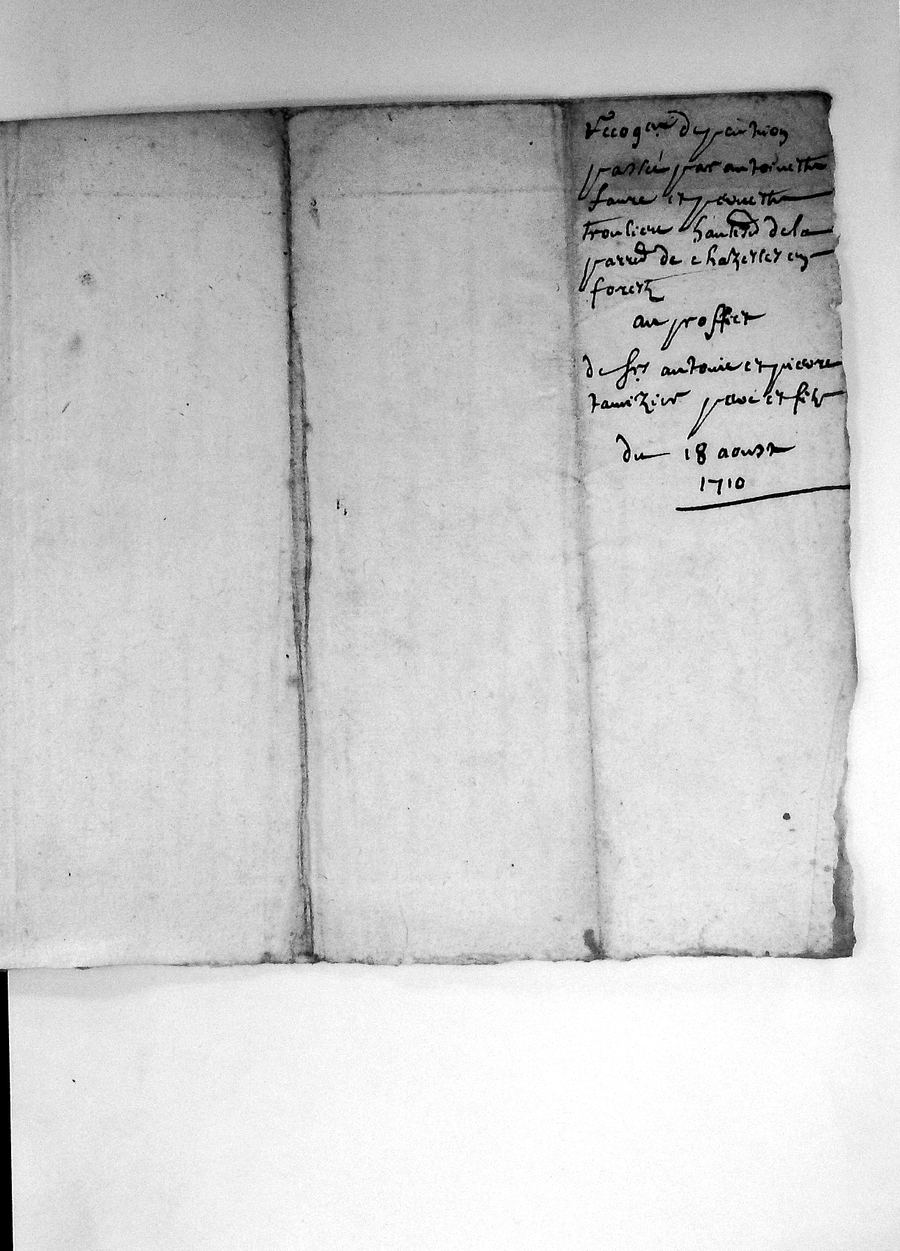 recogce de pention
passée par antoinette
faure et pernette
troulieu habtes de la
parred de chazelles en
foretz
au proffict
de srs antoine et pierre
tamizier pere et filz
du 18 aoust
1710